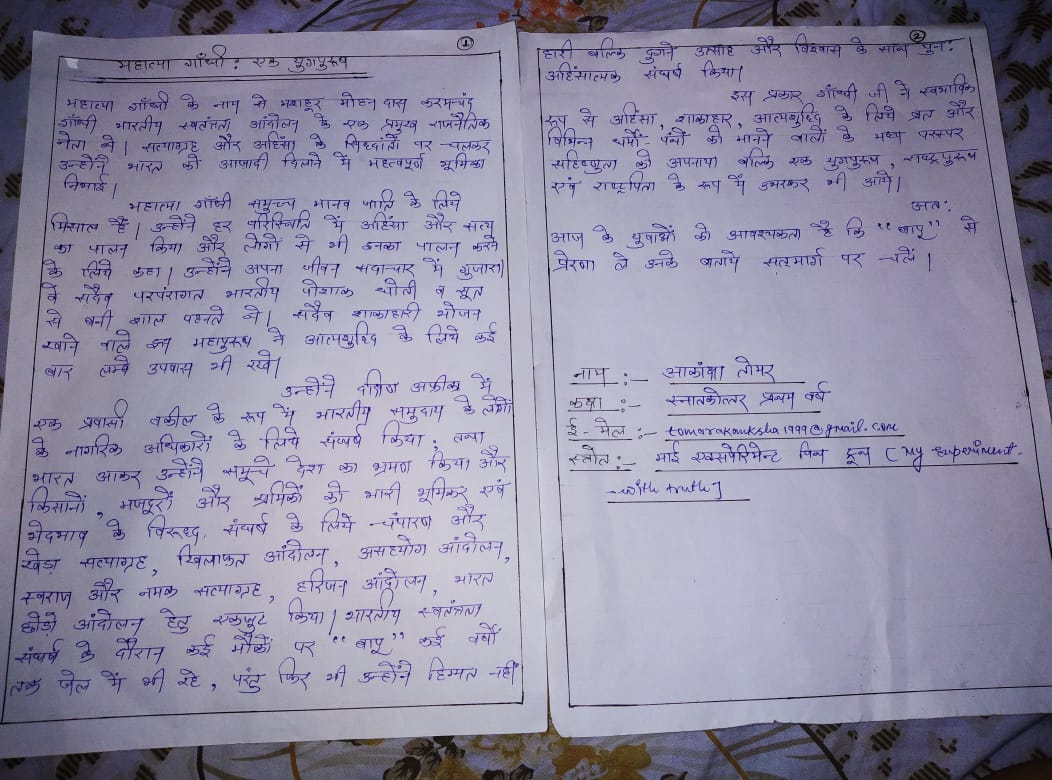 ①
महात्मा गाँधी : एक युगपुरूष
महात्मा गाँधी के नाम से मशहूर मोहन दास करमचंद
गाँधी भारतीय स्वतंत्रता आंदोलन के एक प्रमुख राजनैतिक
नेता थे। सत्याग्रह और अहिंसा के सिध्दांतों पर चलकर
उन्होंने भारत को आजादी दिलाने में महत्वपूर्ण भूमिका
निभाई।
महात्मा गाँधी समुच्च मानव जाति के लिये
मिसाल हैं। उन्होंने हर परिस्थिति में अहिंसा और सत्य
का पालन किया और लोगों से भी इनका पालन करने
के लिये कहा। उन्होंने अपना जीवन सदाचार में गुजारा।
वे सदैव परपंरागत भारतीय पोशाक धोती व सूत
से बनी शाल पहनते थे। सदैव शाकाहारी भोजन
खाने वाले इन महापुरूष ने आत्मशुध्दि के लिये कई
बार लम्बे उपवास भी रखे।
उन्होंने दक्षिण अफ्रीका में
एक प्रवासी वकील के रूप में भारतीय समुदाय के लोगों
के नागरिक अधिकारों के लिये संघर्ष किया, तथा
भारत आकर उन्होंने समूचे देश का भ्रमण किया और
किसानों, मजदूरों और श्रमिकों को भारी भूमिकर एवं
भेदभाव के विरूध्द, संघर्ष के लिये चंपारण और
खेड़ा सत्याग्रह, खिलाफत आंदोलन, असहयोग आंदोलन,
स्वराज और नमक सत्याग्रह, हरिजन आंदोलन, भारत
छोड़ो आंदोलन हेतु एकजुट किया। भारतीय स्वतंत्रता
संघर्ष के दौरान कई मौकों पर "बापू" कई वर्षों
तक जेल में भी रहे, परंतु फिर भी उन्होंने हिम्मत नहीं
②
हारी बल्कि दुगने उत्साह और विश्वास के साथ पुनः
अहिंसात्मक संघर्ष किया।
इस प्रकार गाँधी जी ने स्वभाविक
रूप से अहिंसा, शाकाहार, आत्मशुध्दि के लिये व्रत और
विभिन्न धर्मों- पंथों को मानने वालों के मध्य परस्पर
सहिष्णुता को अपनाया बल्कि एक युगपुरूष, राष्ट्रपुरूष
एवं राष्ट्रपिता के रूप में उभरकर भी आये।
अतः
आज के युवाओं को आवश्यकता है कि "बापू" से
प्रेरणा ले उनके बताये सत्मार्ग पर चलें।
नाम :- आकांक्षा तोमर
कक्षा :- स्नातकोत्तर प्रथम वर्ष
ई-मेल :- tomarakanksha1999@gmail.com
स्त्रोत :- माई एक्सपेरिमेन्ट विथ ट्रूथ (My experiment-
-with truth]